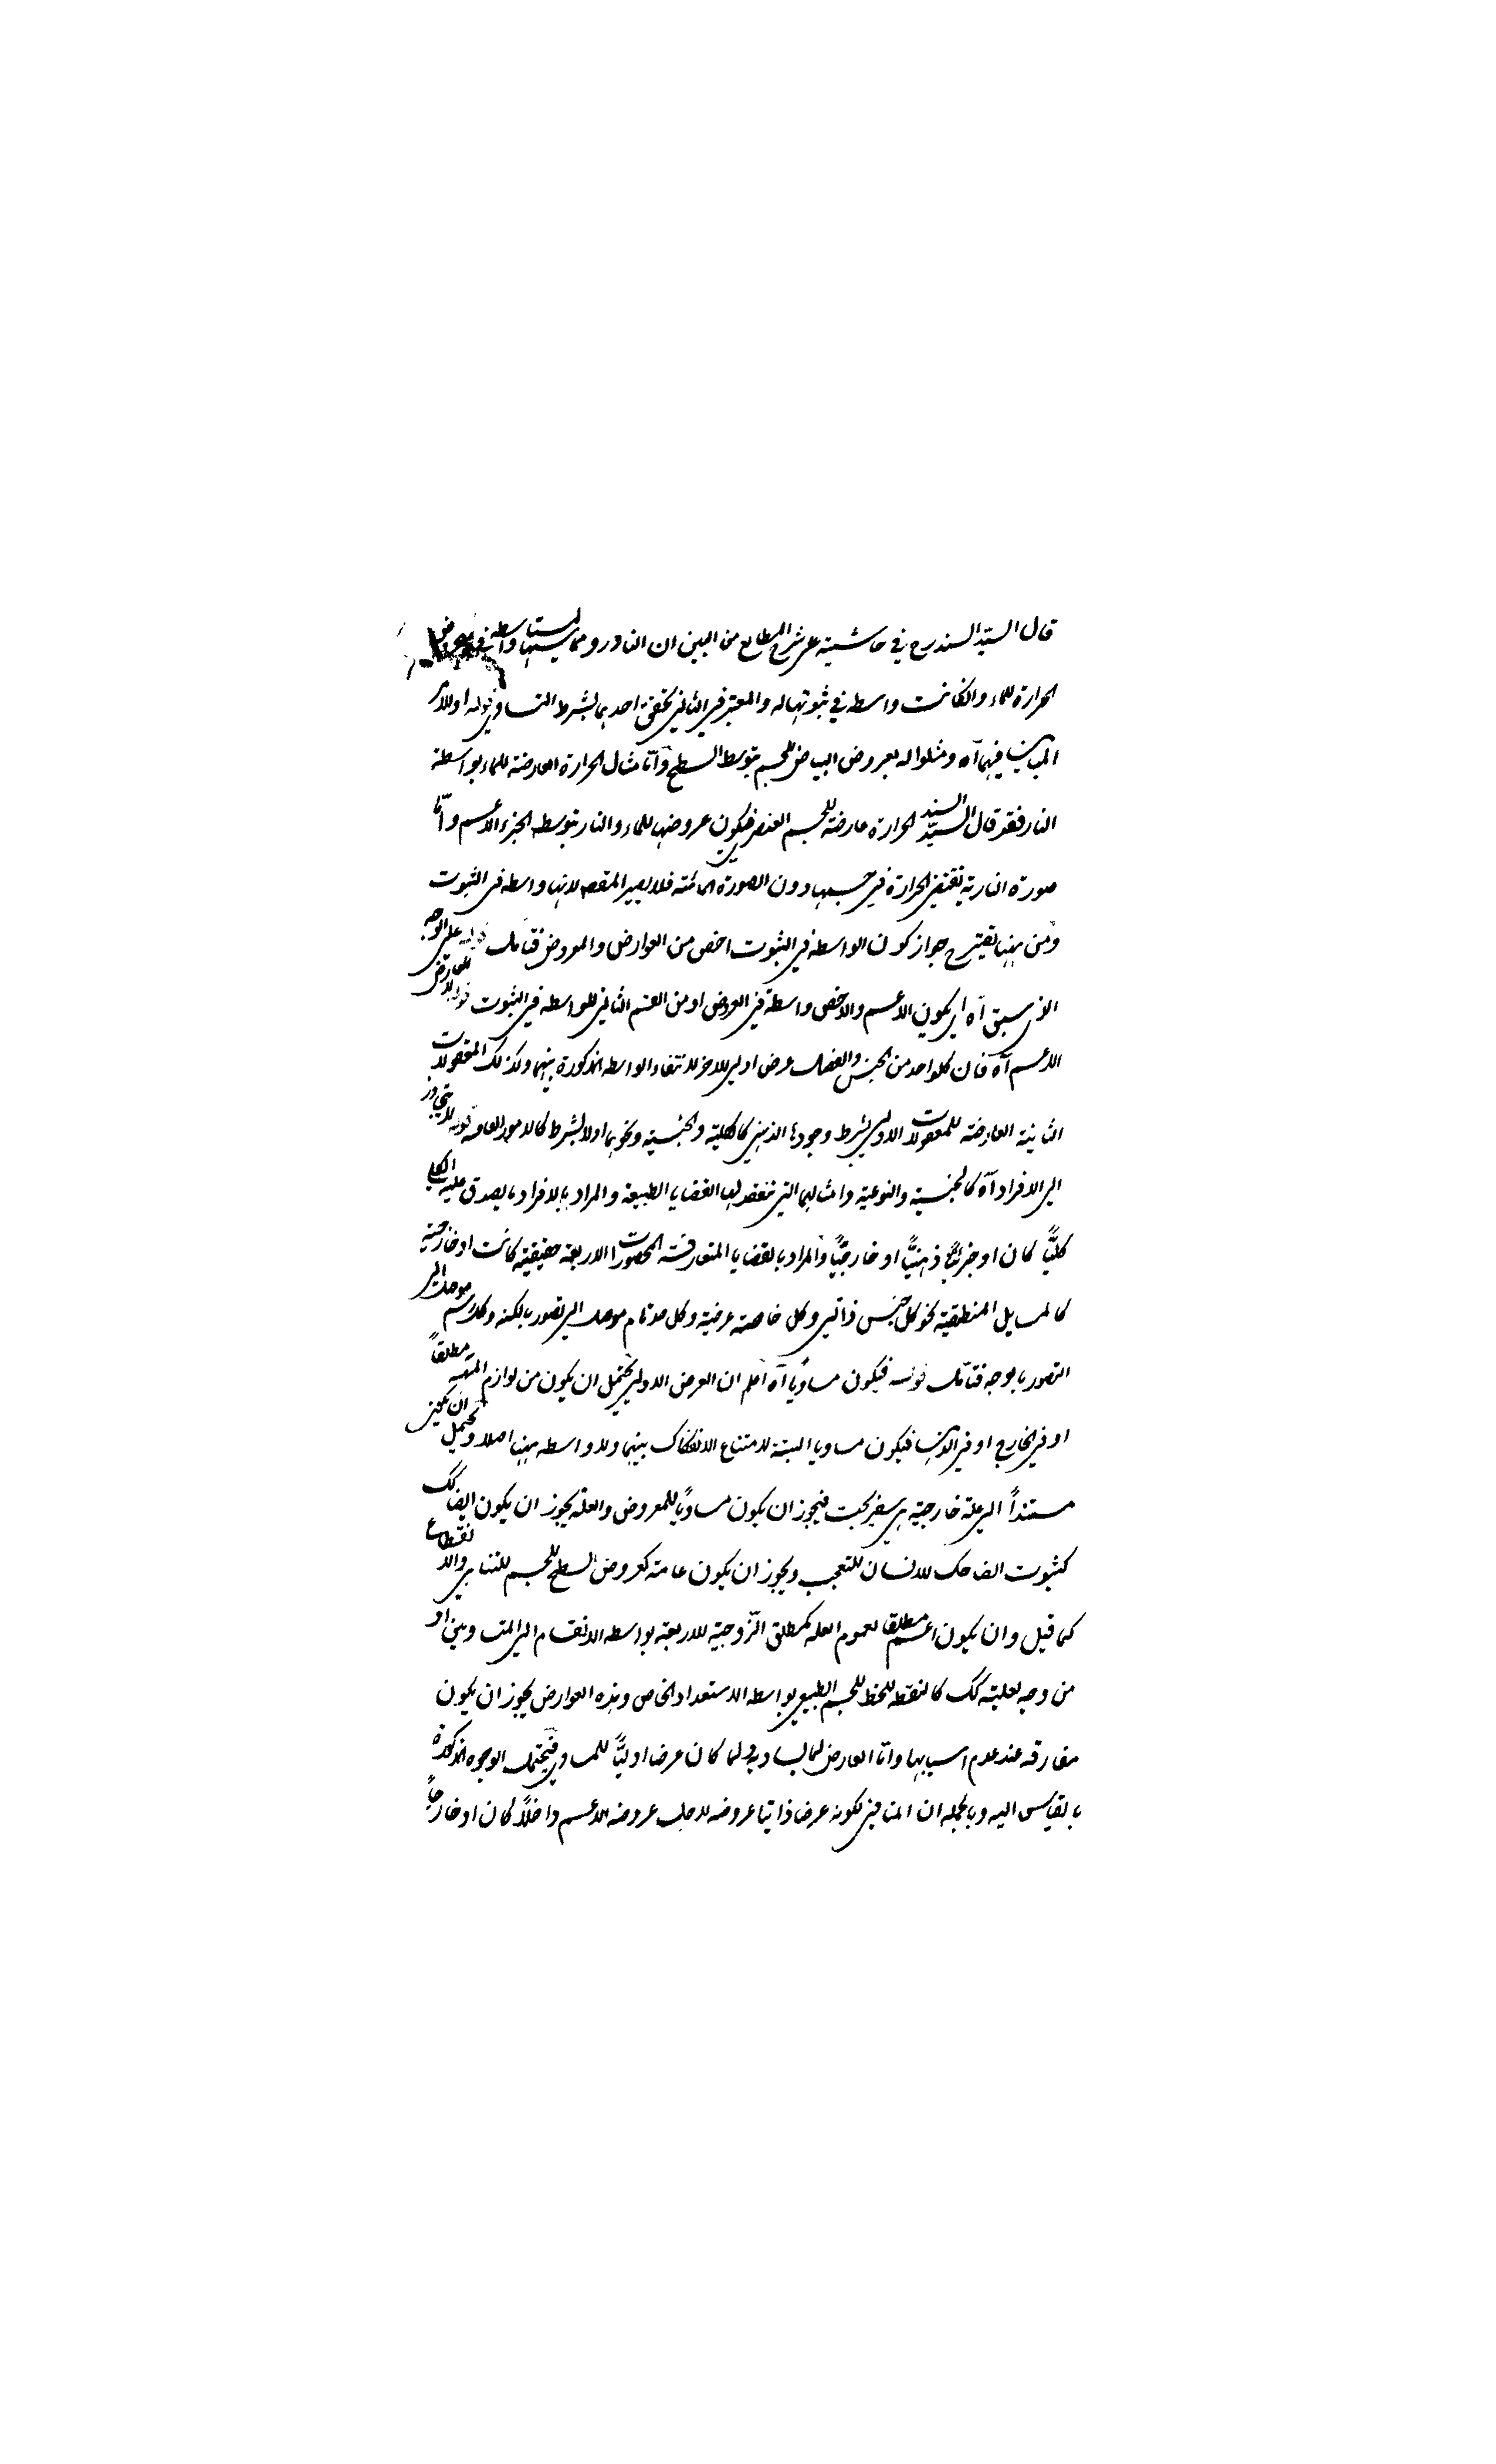 قال السيد السند رح في حاشيته على شرح المطالع من البين ان النار ومماستها ليست واسطة في عروض
الحرارة للماء وان كانت واسطه في ثبوتها له والمعتبر في الثاني تحقق احدهما بشرط التساوي قوله اولا لامر
المباين فيهما آه ومثلوا له بعروض البياض للجسم بتوسط السطح واما مثال الحرارة العارضة للماء بواسطة
النار فقد قال السيد السند الحرارة عارضة للجسم العنصري فيكون عروضها للماء والنار بتوسط الجزء الاعم واما
صورة النارية تقتضي الحرارة في جسمها دون الصورة المائية فلا يصير المقصم لانها واسطه في الثبوت
ومن ههنا يقترح جواز كون الواسطه في الثبوت اخص من العوارض والمعروض فتامل قوله على الوجه
الذي سبق آه اي يكون الاعم والاخص واسطة في العروض او من القسم الثاني للواسطه في الثبوت قوله للعارض
الاعم آه فان كلواحد من الجنس والفصل عرض اولي للاخر لانتفاء الواسطه المذكورة بينهما وكذلك المعقولات
الثانية العارضة للمعقولات الاولى بشرط وجودها الذهني كالكلية والجنسية ونحوهما اولا بشرط كالامور العامه قوله لا يتجاوز
الى الافراد آه كالجنسية والنوعية وامثالهما التي تنعقد لها القضايا الطبيعة والمراد بالافراد ما يصدق عليه الكلي
كليًا كان او جزئيًا ذهنيًا او خارجيًا والمراد بالقضايا المتعارفة المحصورات الاربعة حقيقية كانت او خارجية
كالمسايل المنطقية نحو كل جنس ذاتي وكل خاصة عرضية وكل حد تام موصل الى تصور بالكنه وكل رسم موصل الى
التصور بالوجه فتامل قوله فيكون مساويا آه اعلم ان العرض الاولي يحتمل ان يكون من لوازم المهية مطلقاً
او في الخارج او في الذهن فيكون مساويا البتة لامتناع الانفكاك بينهما ولا واسطه ههنا اصلا ويحتمل ان يكون
مستنداً الى علة خارجية هي سفير بحت فيجوز ان يكون مساويًا للمعروض والعلة يجوز ان يكون ايضا كك
كثبوت الضاحك للانسان للتعجب ويجوز ان يكون عامة كعروض السطح للجسم للتناهي والانقطاع
كما قيل وان يكون اعم مطلقا لعموم العله كمطلق الزوجية للاربعة بواسطه الانقسام الى المتساويين او
من وجه لعليته كك كالنقطه للخط للجسم الطبيعي بواسطه الاستعداد الخاص وهذه العوارض يجوز ان يكون
مفارقه عند عدم اسبابها واما العارض لما يساويه فلما كان عرضا اوليًا للمساوي فيحتمل الوجوه المذكورة
بالقياس اليه وبالجمله ان المنافي لكونه عرضا ذاتيا عروضه لاجل عروضه للاعم داخلًا كان او خارجًا